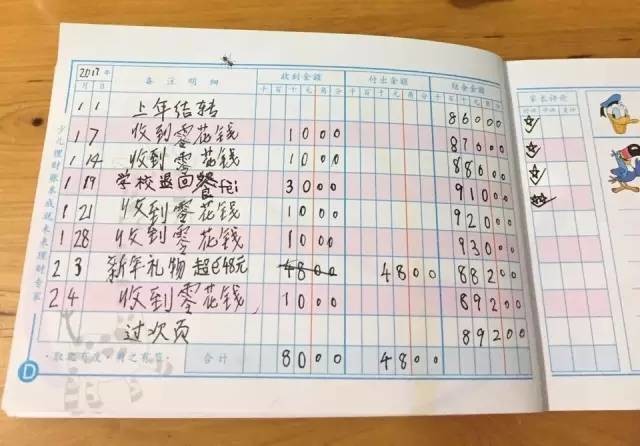 2017年 备注明细 收到金额 付出金额 结余金额
月 日 千 百 十 元 角 分 千 百 十 元 角 分 千 百 十 元 角 分
1 1 上年结转 86000
1 7 收到零花钱 1000 87000
1 14 收到零花钱 1000 88000
1 19 学校退回餐fei 3000 91000
1 21 收到零花钱 1000 92000
1 28 收到零花钱 1000 93000
2 3 新年礼物 超 48元 4800 4800 88200
2 4 收到零花钱 1000 89200
过次页 89200
·取之有度·用之有节· 合计 8000 4800
少儿理财账本成就未来理财专家
D
家长评价